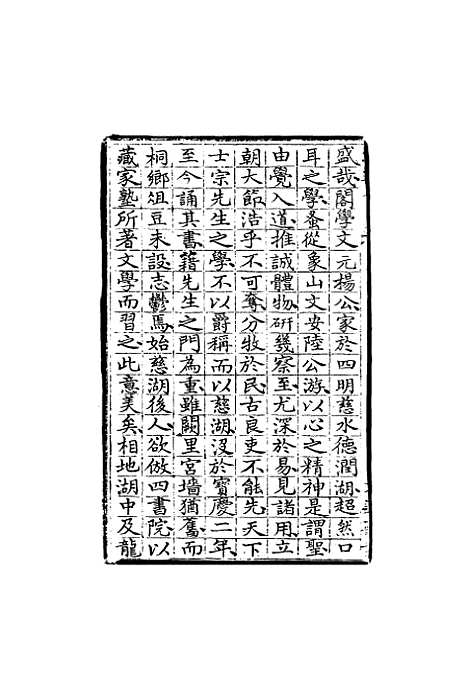 盛哉閣學文元楊公家於四明慈水德潤湖超然口
耳之學蚤從象山文安陸公游以心之精神是謂聖
由覺入道推誠體物研幾察至尤深於易見諸用立
朝大節浩乎不可奪分牧於民古良吏不能先天下
士宗先生之學不以爵稱而以慈湖沒於寶慶二年
至今誦其書籍先生之門為重雖闕里宮墻猶奮而
桐鄉俎豆未設志鬱焉始慈湖後人欲倣四書院以
藏家塾所著文學而習之此意美矣相地湖中及龍